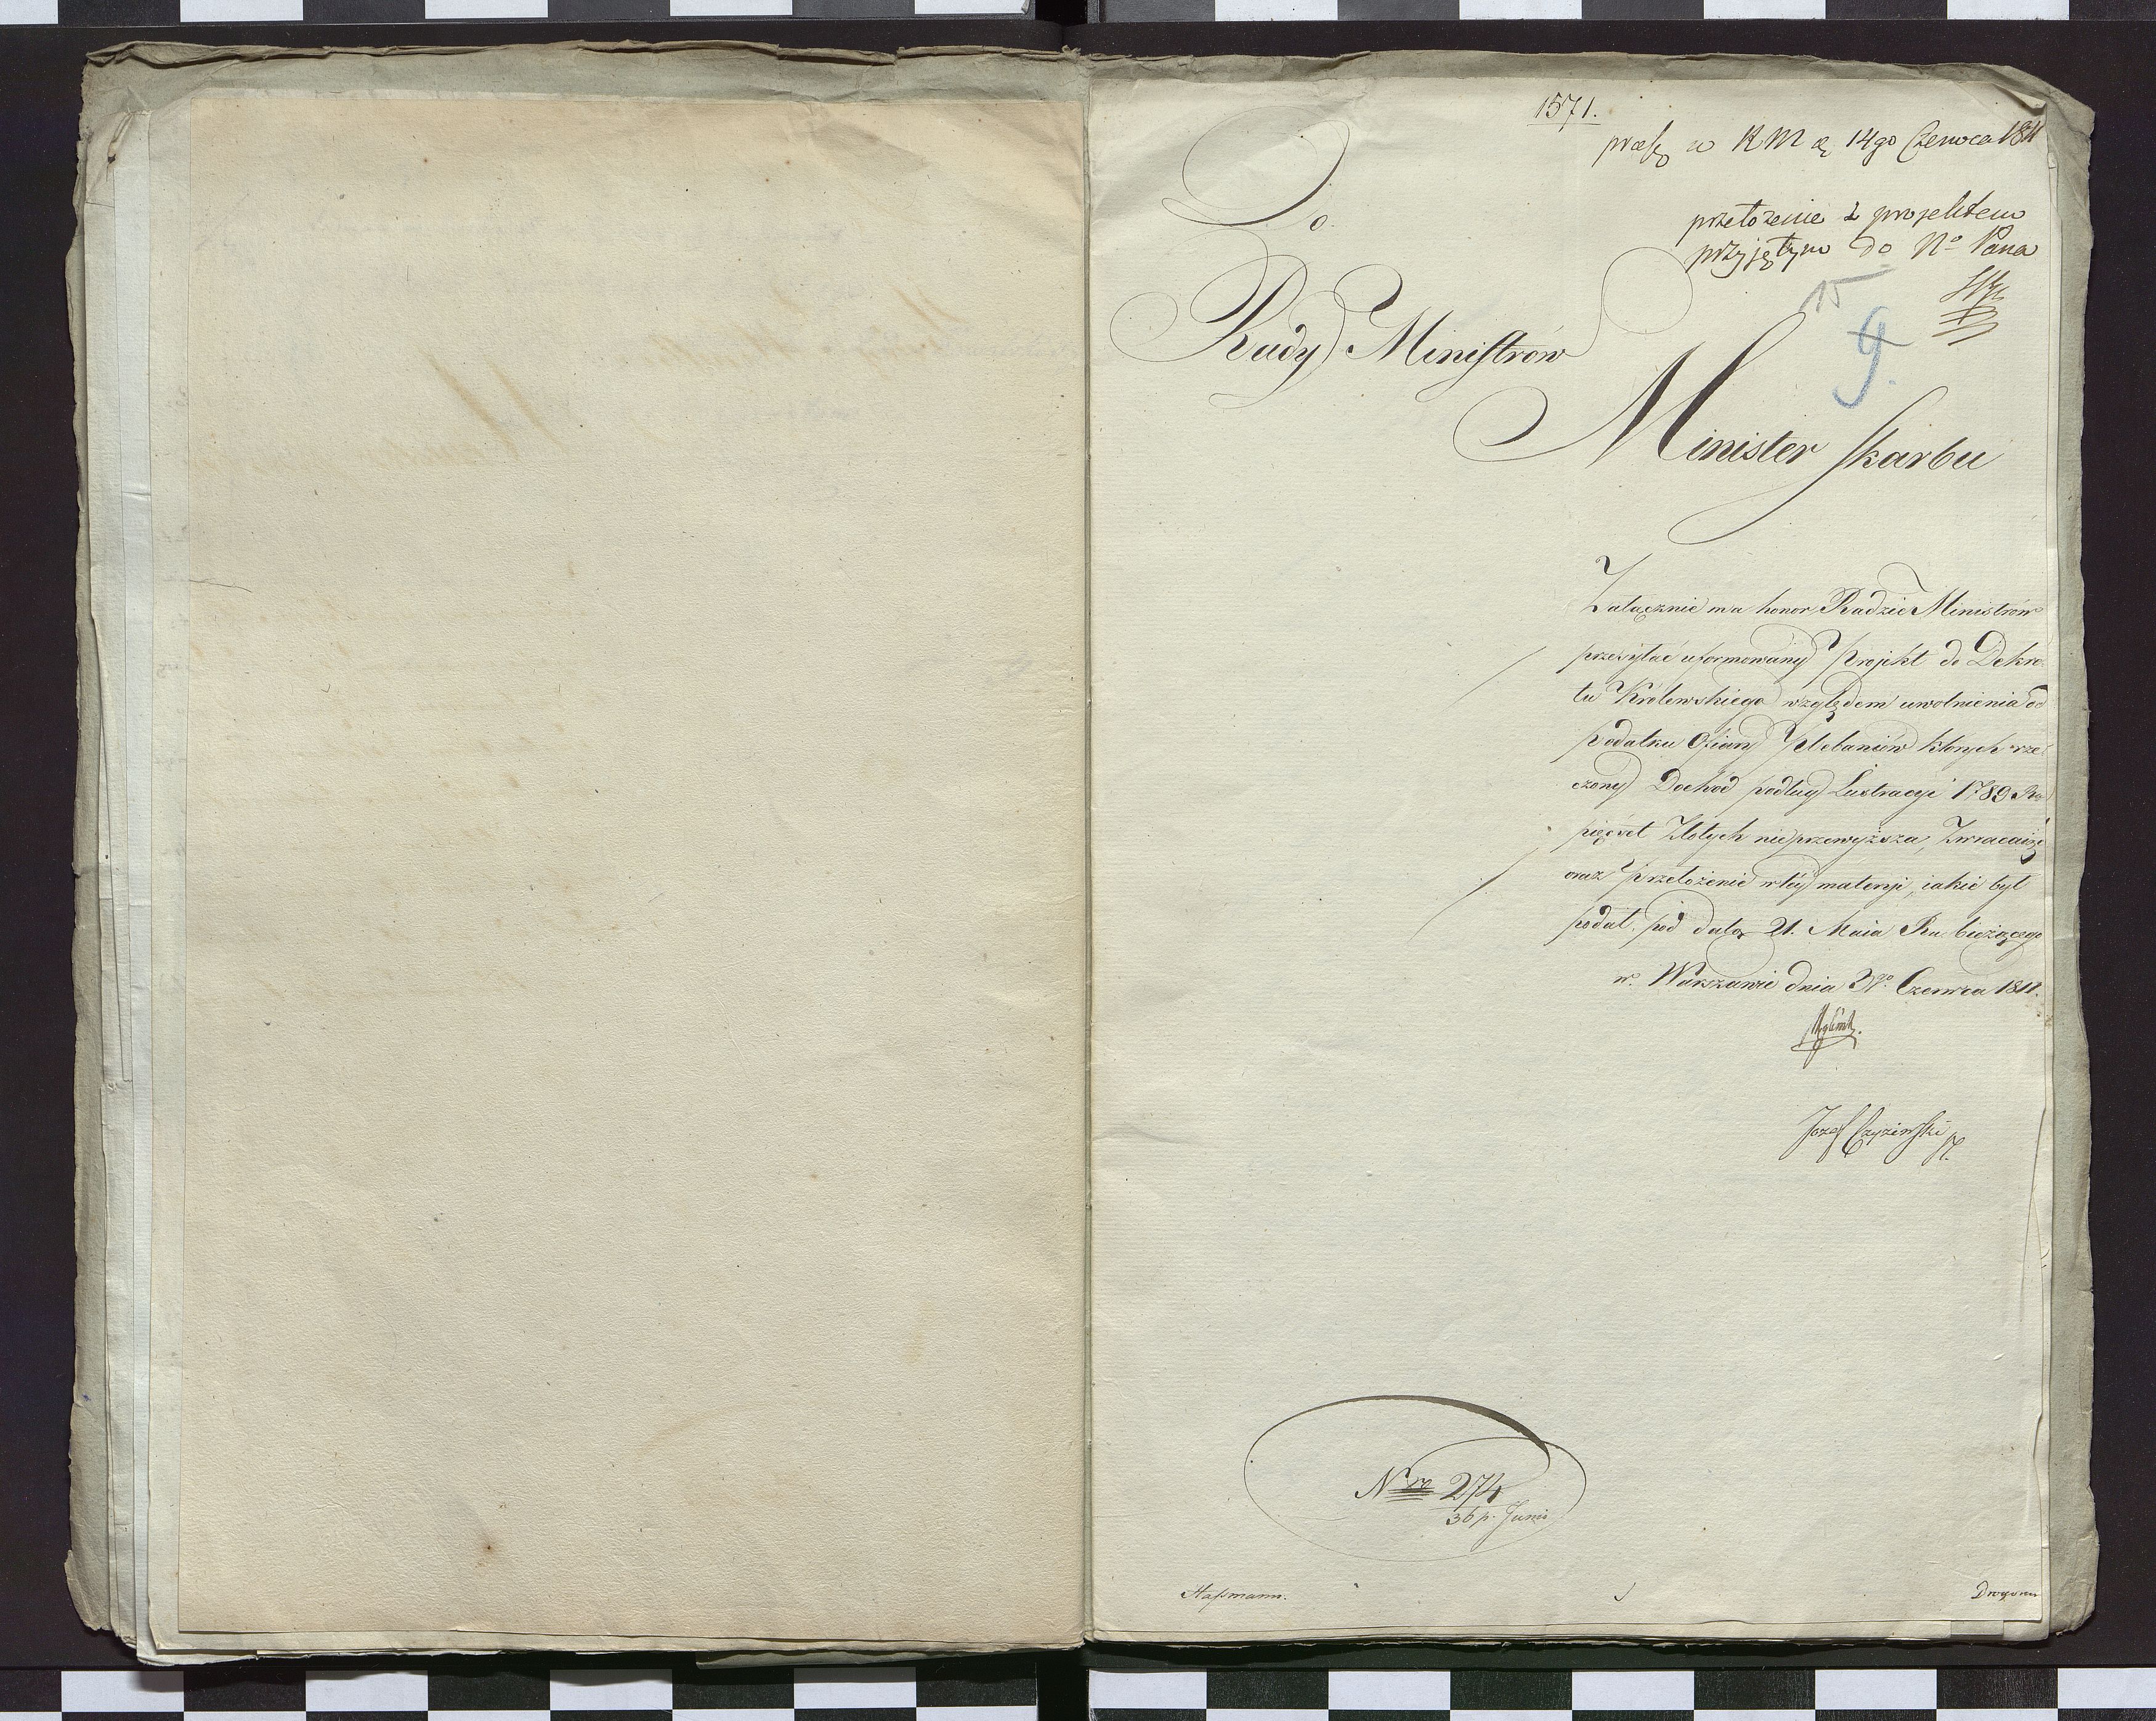 1571.
w RM 14go Czerwca 1811
przełożenie z projektem
przyjętym do No Pana
15
9.
Do
Rady Ministrów
Minister Skarbu
Załącznie ma honor Radzie Ministrów
przesyłać uformowany Projekt do Dekre-
tu Królewskiego względem uwolnienia od
podatku Ofiary Plebaniów których rze-
czony Dochód podług Lustracyi 1789 Ro
pięćset Złotych nieprzewyższa, Zwracaiąc
oraz Przełożenie w tey materyi, iakie był
podał pod datą 21. Maia Ru bieżącego
w Warszawie dnia Czerwca 1811.
Jozef Czyżewski
Nro 274
36 p. Junii
Hassmann.